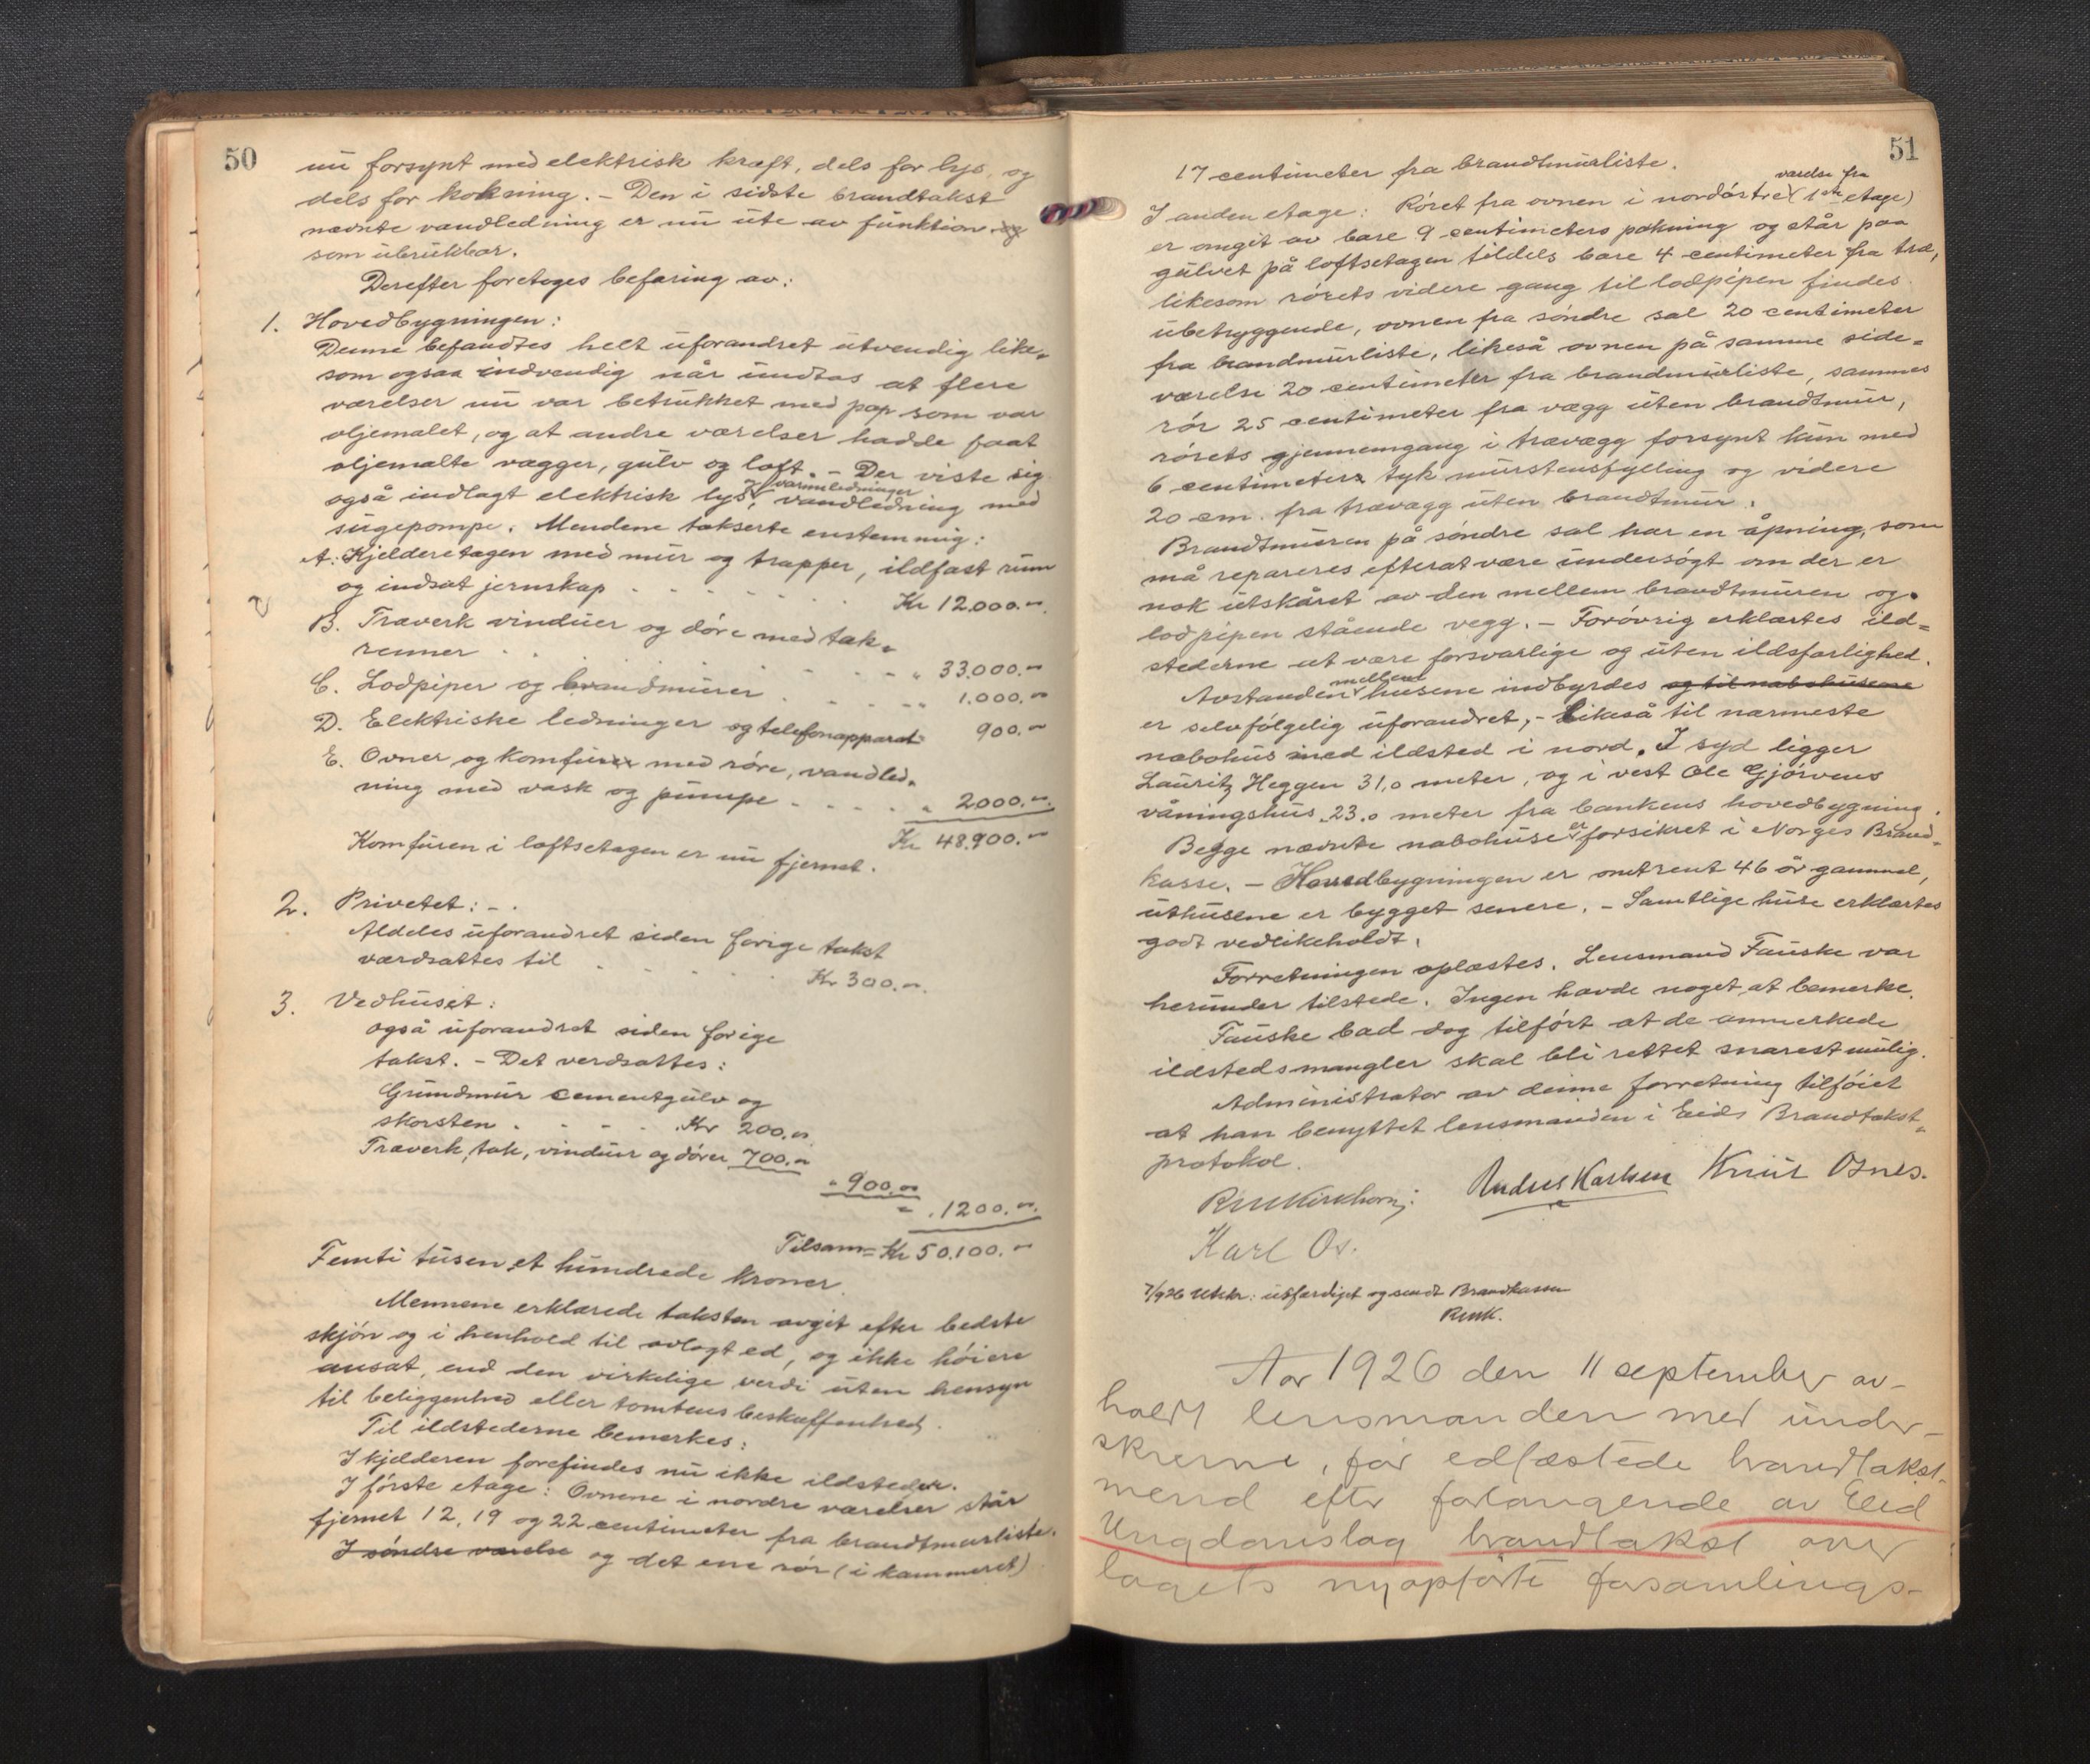 50
nu forsynt med elektrisk kraft, dels for lys, og
dels for kokning. – Den i sidste brandtakst
nævnte vandledning er nu ute av funktion og
som ubrukbar.
Derefter foretoges befaring av:
1. Hovedbygningen:
Denne befandtes helt uforandret utvendig like-
som ogsaa indvendig når undtas at flere
værelser nu var betrukket med pap som var
oljemalet, og at andre værelser hadde faat
oljemalte vægger, gulv og loft. – Der viste sig
også indlagt elektrisk lys, varmeledninger vandledning med
sugepompe. Mendene takserte enstemmig:
A. Kjelderetagen med mur og trapper, ildfast rum
og indsat jernskap . . . . . . Kr 12.000.–
B. Træverk vinduer og døre med tak-
renner . . . . . „ 33.000.–
C. Lodpiper og brandmurer . . . . „ 1.000.–
D. Elektriske ledninger og telefonapparat 900.–
E. Ovner og komfurer med røre, vandled-
ning med vask og pumpe . . . . „ 2.000.–
Kr 48.900.–
Komfuren i loftsetagen er nu fjernet.
2. Privetet: – .
Aldeles uforandret siden forige takst
værdsattes til . . . . . . Kr 300.–
3. Vedhuset:
også uforandret siden forige
takst. – Det verdsattes:
Grundmur cementgulv og
skorsten . . . . Kr 200.–
Træverk, tak, vinduer og dører 700.–
„ 900.–
„ 1200.–
Tilsam= Kr 50.100.–
Femti tusen et hundrede kroner.
Mennene erklærede taksten avgit efter bedste
skjøn og i henhold til avlagt ed, og ikke høiere
ansat, end den virkelige verdi uten hensyn
til beliggenhed eller tomtens beskaffenhed.
Til ildstederne bemerkes:
I kjelderen forefindes nu ikke ildsteder.
I første etage: Ovnene i nordre værelser står
fjernet 12, 19 og 22 centimeter fra brandtmurliste.
I søndre værelse og det ene rør (i kammeret)
51
17 centimeter fra brandtmurliste.
I anden etage: Røret fra ovnen i nordøstre værelse fra (1ste etage)
er omgit av bare 9 centimeters pakning og står paa
gulvet på loftsetagen tildels bare 4 centimeter fra træ,
likesom rørets videre gang til lodpipen findes
ubetryggende, ovnen fra søndre sal 20 centimeter
fra brandmurliste, likeså ovnen på samme side-
værelse 20 centimeter fra brandmurliste, sammes
rør 25 centimeter fra vægg uten brandtmur,
rørets gjennemgang i trævægg forsynt kun med
6 centimeters tyk murstensfylling og videre
20 cm. fra trævægg uten brandtmur.
Brandtmuren på søndre sal har en åpning, som
må repareres efterat være undersøgt om der er
nok utskåret av den mellem brandtmuren og
lodpipen stående vegg. – Forøvrig erklærtes ild-
stederne at være forsvarlige og uten ildsfarlighed.
Avstanden mellem husene indbyrdes og til nabohusene
er selvfølgelig uforandret, – Likeså til nærmeste
nabohus med ildsted i nord. I syd ligger
Lauritz Heggen 31,0 meter, og i vest Ole Gjørvens
våningshus 23.0 meter fra bankens hovedbygning.
Begge nævnte nabohuse er forsikret i Norges Brand-
kasse. – Hovedbygningen er omtrent 46 år gammel,
uthusene er bygget senere. – Samtlige huse erklærtes
godt vedlikeholdt.
Forretningen oplæstes. Lensmand Fauske var
herunder tilstede. Ingen havde noget at bemerke.
Fauske bad dog tilført at de anmerkede
ildstedsmangler skal bli rettet snarest mulig.
Administrator av denne forretning tilføiet
at han benyttet lensmanden i Eids Brandtakst-
protokol.
Andreas Karlsen Knut Osnes.
Karl Os.
7/926 Utskr: utfærdiget og sendt Brandkassen
Aar 1926 den 11 september av-
holdt lensmanden med under-
skrevne, før edfæstede brandtakst-
mend efter forlangende av Eid
Ungdomslag brandtakst over
lagets nyopførte forsamlings-